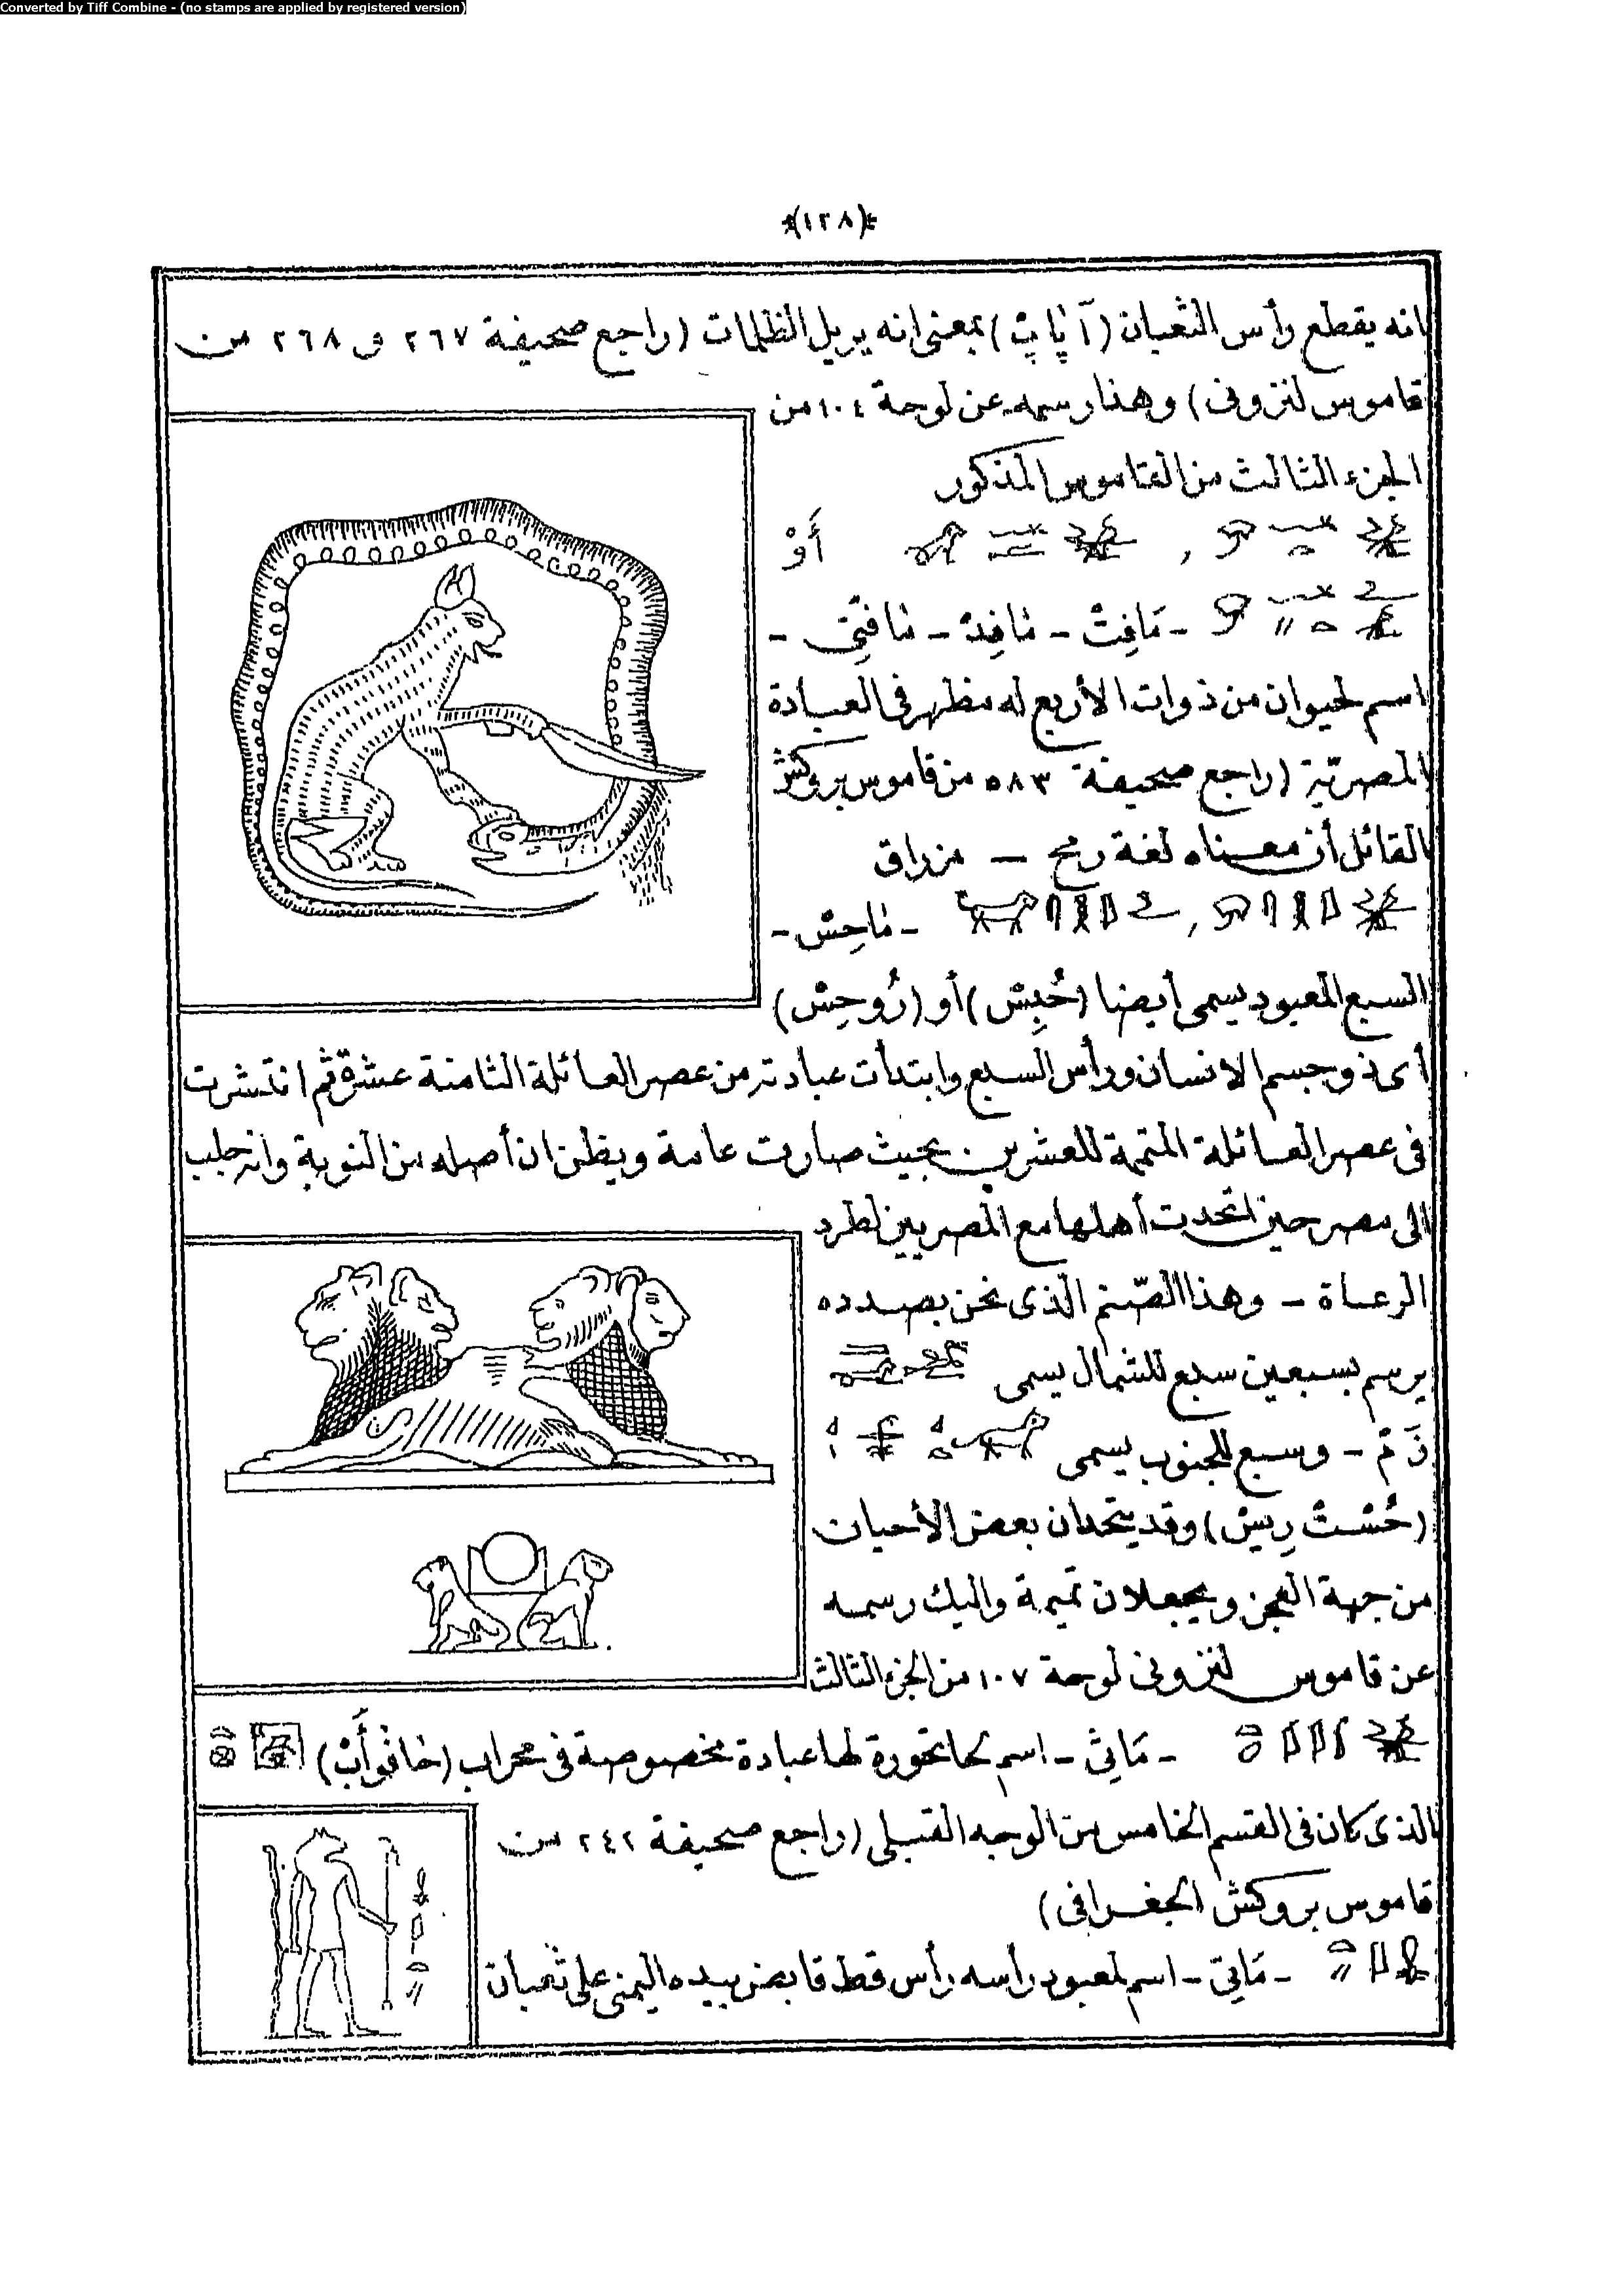 Converted by Tiff Combine - (no stamps are applied by registered version)
(١٢٨)
انه يقطع رأس الثعبان (آپاپ) بمعنى انه يزيل الظلمات (راجع صحيفة ٢٦٧ و ٢٦٨ من
قاموس لنزونى) وهذا رسمه عن لوحة ١٠٤ من
الجزء الثالث من القاموس المذكور
أَوْ
- مَافِتْ - مَافِدْ - مَافتِى -
اسم لحيوان من ذوات الأربع له مظهر فى العبادة
المصريّة (راجع صحيفة ٥٨٣ من قاموس بروكش
القائل أن معناه لغة رمح - مزراق
- مَاحِسْ -
السبع المعبود يسمى أيضا أو
أى ذو جسم الانسان ورأس السبع وابتدأت عبادته من عصر العائلة الثامنة عشرة ثم انتشرت
فى عصر العائلة المتممة للعشرين بحيث صارت عامة ويظن ان أصله من النوبة وانه جلب
الى مصر حين اتحدت أهلها مع المصريين لطرد
الرعاة - وهذا الصّنم الذى نحن بصدده
يرسم بسبعين سبع للشمال يسمى
- وسبع للجنوب يسمى
وقد يتحدان بعض الأحيان
من جهة العجز ويجعلان تميمة واليك رسمه
عن قاموس لنزونى لوحة ١٠٧ من الجزء الثالث
- مَاتِى - اسم لحاتحورة لها عبادة مخصوصة فى محراب
الذى كان فى القسم الخامس من الوجه القبلى (راجع صحيفة ٢٤٢ من
قاموس بروكش الجغرافى)
- مَاتِى - اسم لمعبود رأسه رأس قط قابض بيده اليمنى على ثعبان